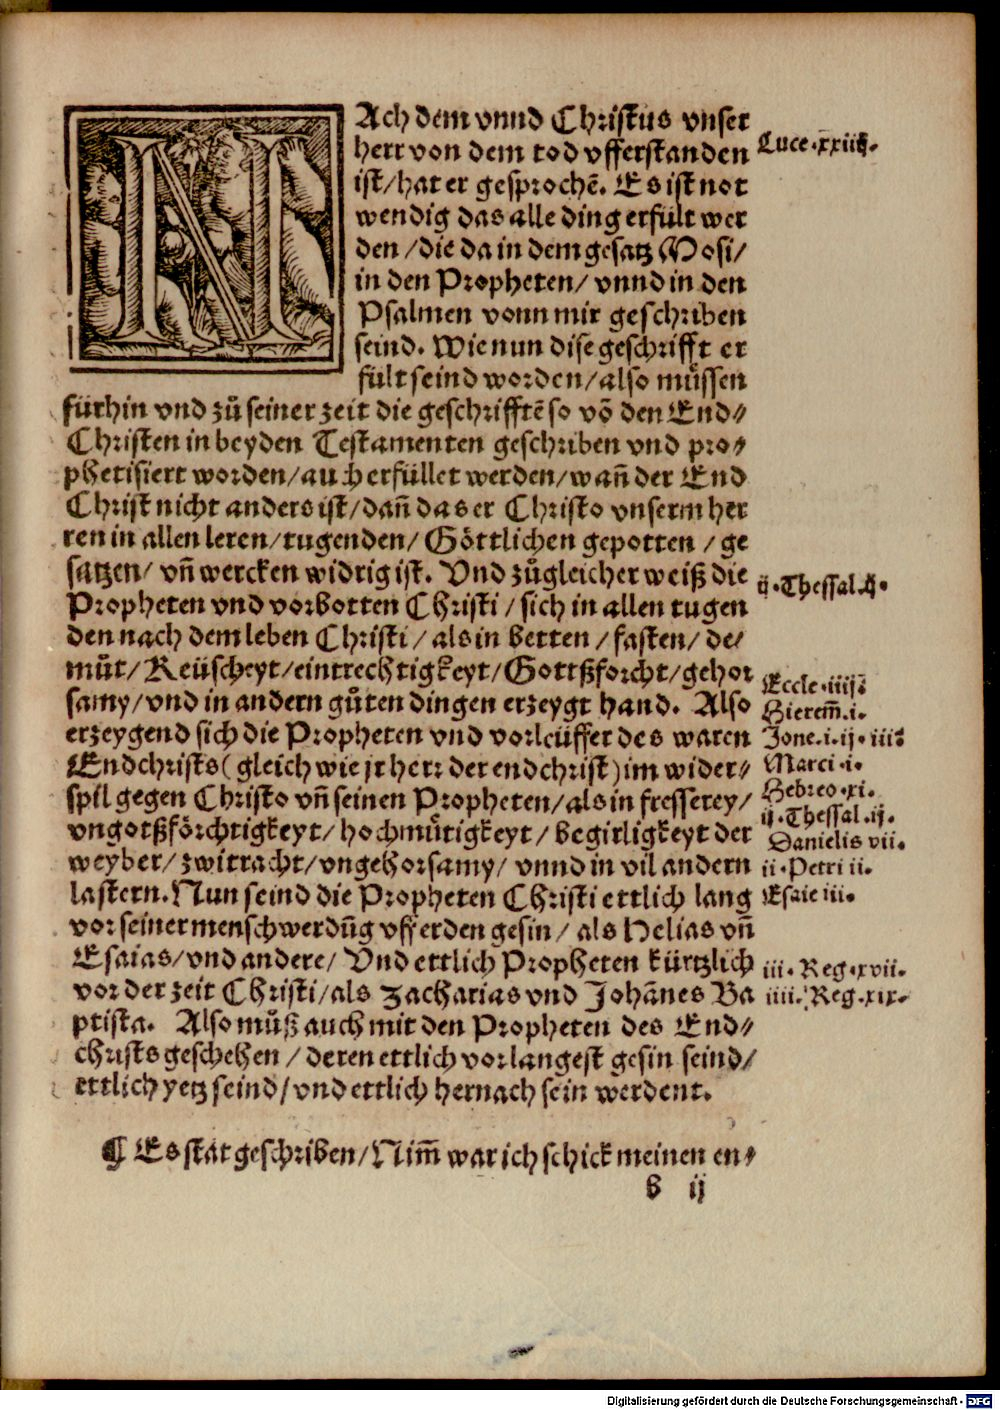 NAch dem vnnd Christus vnser
herr von dem tod vfferstanden
ist/hat er gesprochẽ. Es ist not
wendig das alle ding erfült wer
den/die da in dem gesatz Mosi/
in den Propheten/ vnnd in den
Psalmen vonn mir geschriben
seind. Wie nun dise geschrifft er
fült seind worden/also müssen
fürhin vnd zů seiner zeit die geschrifftẽ so võ den End⸗
Christen in beyden Testamenten geschriben vnd pro⸗
phetisiert worden/auch erfüllet werden/wañ der End
Christ nicht anders ist/dañ das er Christo vnserm her
ren in allen leren/tugenden/Göttlichen gepotten/ge
satzen/vñ wercken widrig ist. Vnd zůgleicher weiß die
Propheten vnd vorbotten Christi/sich in allen tugen
den nach dem leben Christi/als in betten/fasten/de/
můt/Keüscheyt/eintrechtigkeyt/Gottßforcht/gehor
samy/vnd in andern gůten dingen erzeygt hand. Also
erzeygend sich die Propheten vnd vorleüffer des waren
Endchrists(gleich wie jr herr der endchrist)im wider⸗
spil gegen Christo vñ seinen Propheten/als in fresserey/
vngotßförchtigkeyt/hochmůtigkeyt/begirligkeyt der
weyber/zwitracht/vngehorsamy/vnnd in vil andern
lastern. Nun seind die Propheten Christi ettlich lang
vor seiner menschwerdũg vff erden gesin/als Helias vñ
Esaias/vnd andere/Vnd ettlich Propheten kürtzlich
vor der zeit Christi/als Zacharias vnd Johãnes Ba
ptista. Also můß auch mit den Propheten des End⸗
christs geschehen/deren ettlich vorlangest gesin seind/
ettlich yetz seind/vnd ettlich hernach sein werdent.
¶ Es stat geschriben/Nim̃ war ich schick meinen en⸗
b ij
Luce.
ij. Thessal. ij.
Eccle.
Hierem̃. i.
Jone. i. ij. iii.
Marci. i.
Hebreo. xi.
ij. Thessal. ij.
Danielis vii.
ii. Petri ii.
Esaie iii.
iii. Reg. xvii.
iiii. Reg. xix.
Digitalisierung gefördert durch die Deutsche Forschungsgemeinschaft - DFG